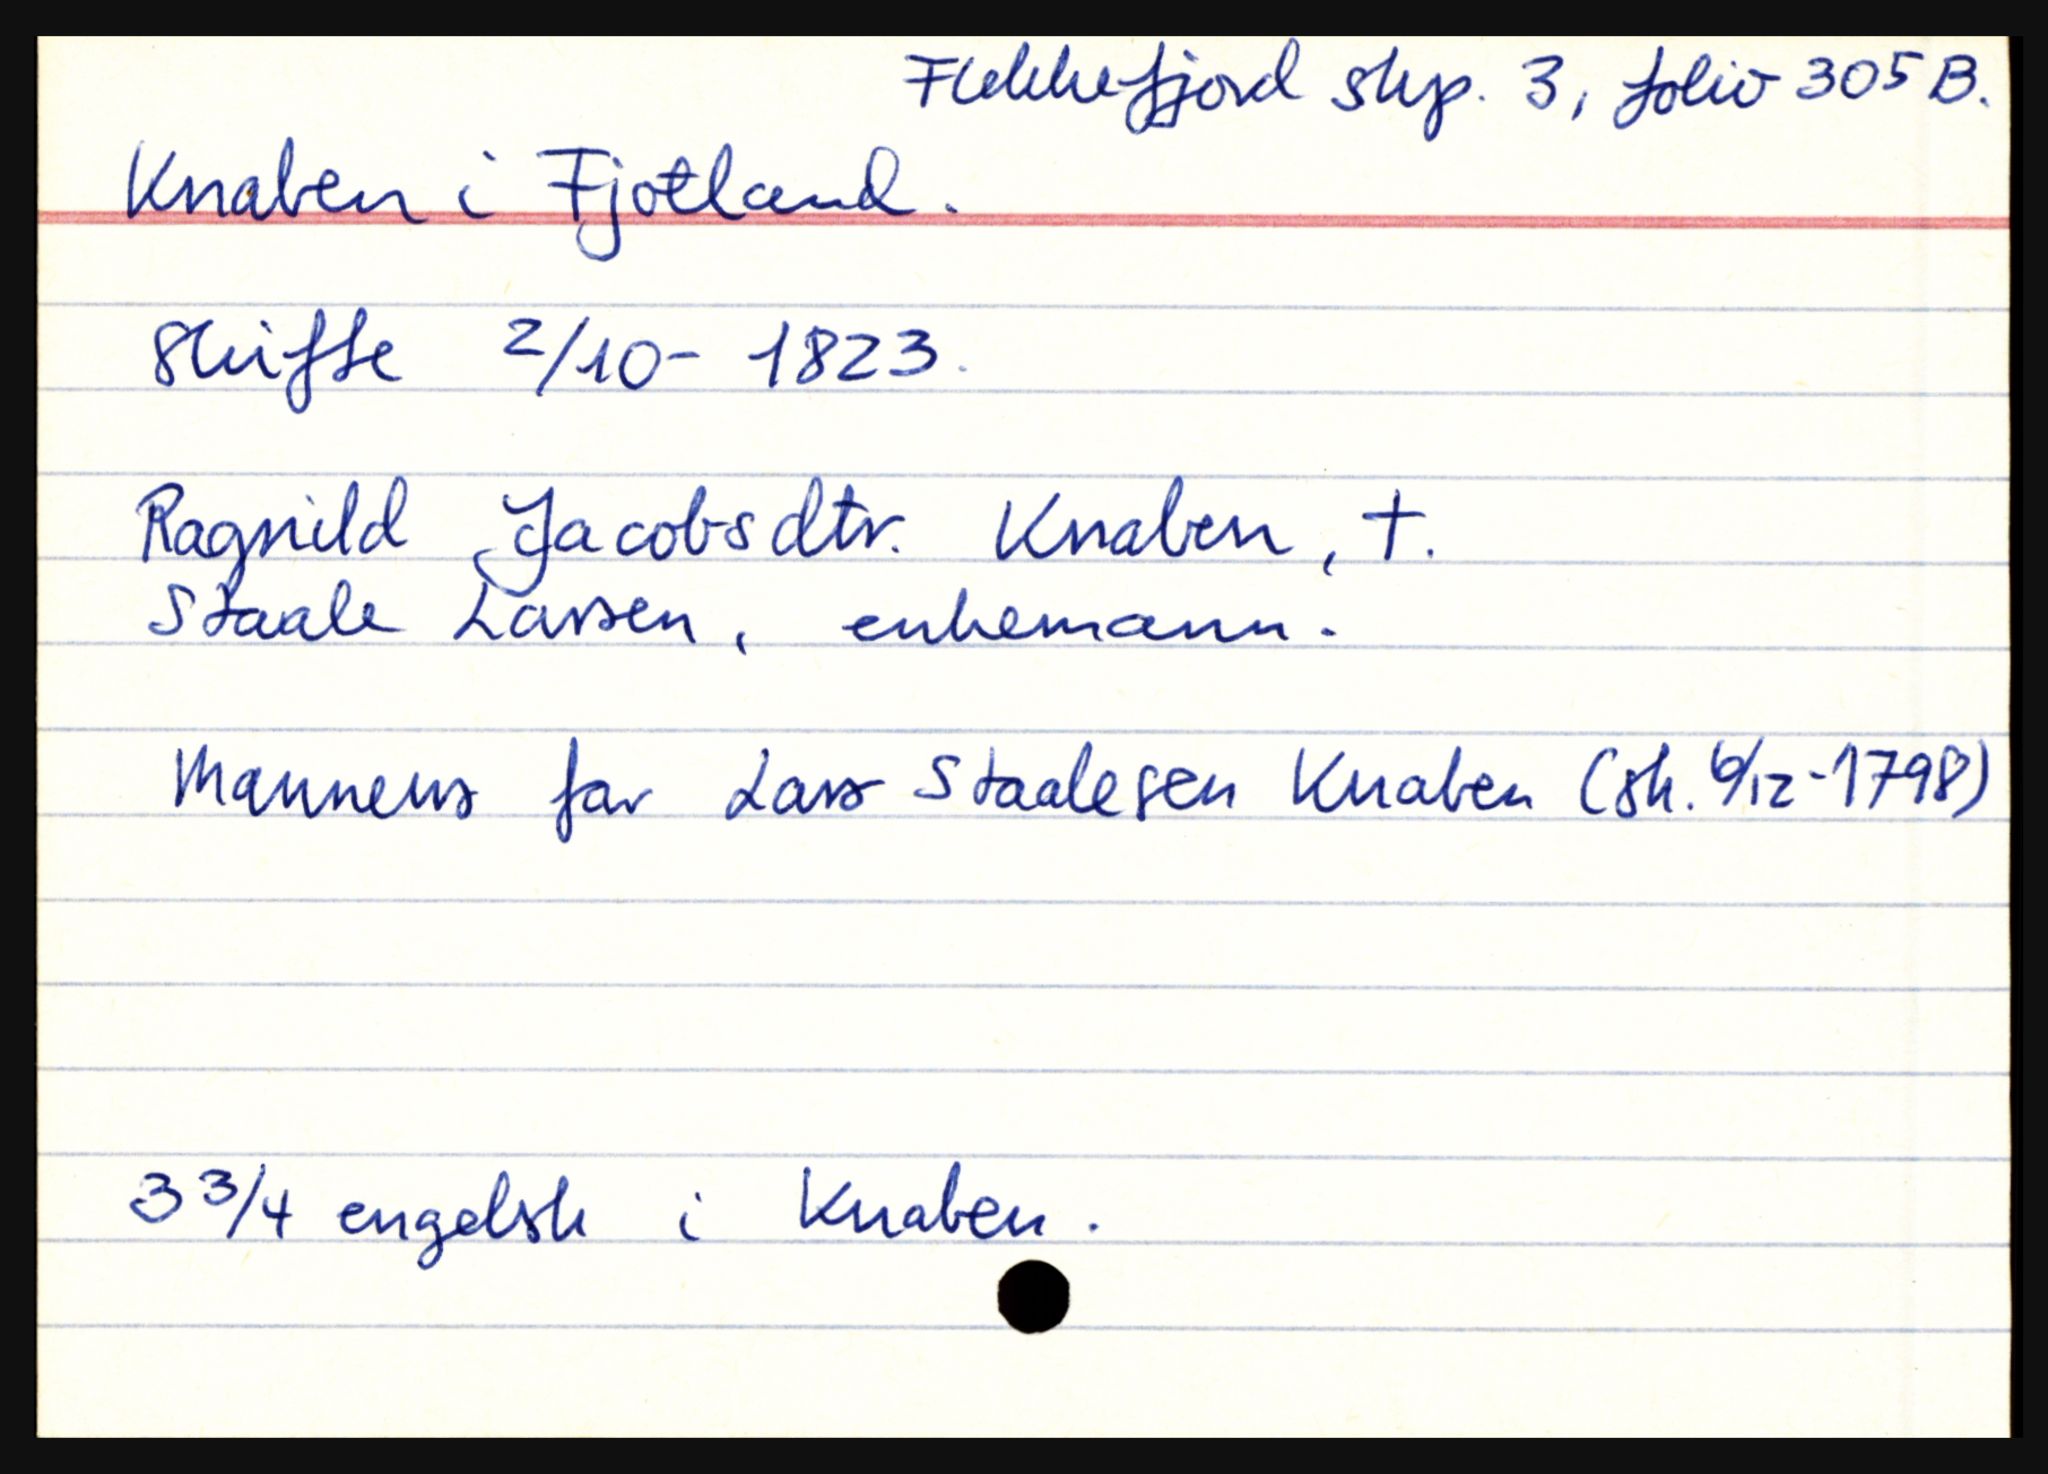 Flekkefjord skp. 3, folio 305 B.
Knaben i Fjotland.
Skifte 2/10- 1823.
Ragnild Jacobsdtr. Knaben, †.
Staale Larsen, enkemann.
Mannens far Lars Staalesen Knaben (sk. 6/12-1798)
3 3/4 engelsk i Knaben.